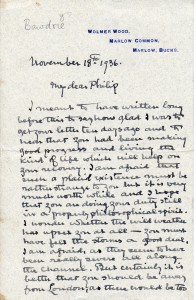 Bawdrie
WOLMER WOOD,
MARLOW COMMON,
MARLOW, BUCKS.
November 18th 1936.
My dear Philip
I meant to have written long
before this to say how glad I was to
get your letter ten days ago and to
hear that you had been making
good progress and living the
kind of life which will help on
your recovery. I am afraid that
such a placid existence must be
rather strange to you but it is very
much worth while and I hope
that you are doing your duty still
in a properly philosophical spirit.
I wonder whether this wild weather
has upset you at all — you must
have felt the storms a good deal,
I am afraid, as they seem to have
been really severe all along
the Channel. But certainly it is
better that you should be away
from London, as there would be too